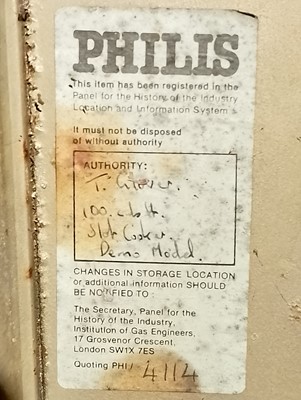 PHILIS
This item has been registered in the
Panel for the History of the Industry
Location and Information System.
It must not be disposed
of without authority
AUTHORITY:
T.
100
Slot Cooker
Demo Model.
CHANGES IN STORAGE LOCATION
or additional information SHOULD
BE NOTIFIED TO:
The Secretary, Panel for the
History of the Industry,
Institution of Gas Engineers,
17 Grosvenor Crescent,
London SW1X 7ES
Quoting PHI/ 4114